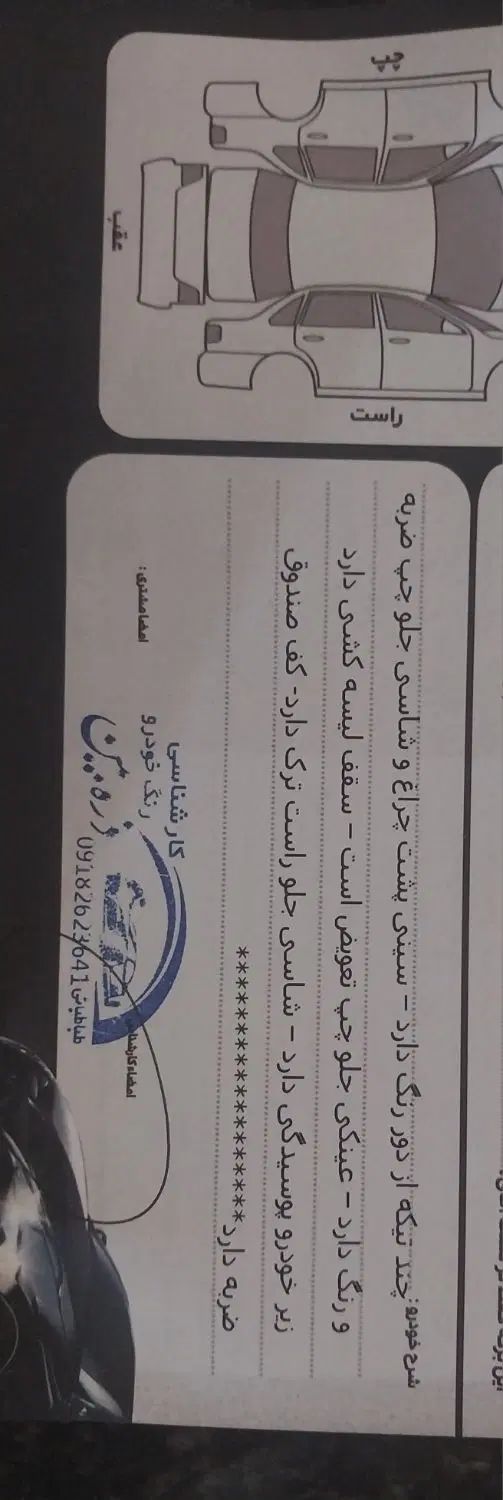 چپ
عقب
راست
شرح خودرو: چند تیکه از دور رنگ دارد - سینی پشت چراغ و شاسی جلو چپ ضربه
و رنگ دارد - عینکی جلو چپ تعویض است - سقف لیسه کشی دارد
زیر خودرو پوسیدگی دارد - شاسی جلو راست ترک دارد- کف صندوق
ضربه دارد ********************
امضا مشتری:
کارشناسی
رنگ خودرو
امضاء کارشناس
09182623641 طباطبائی